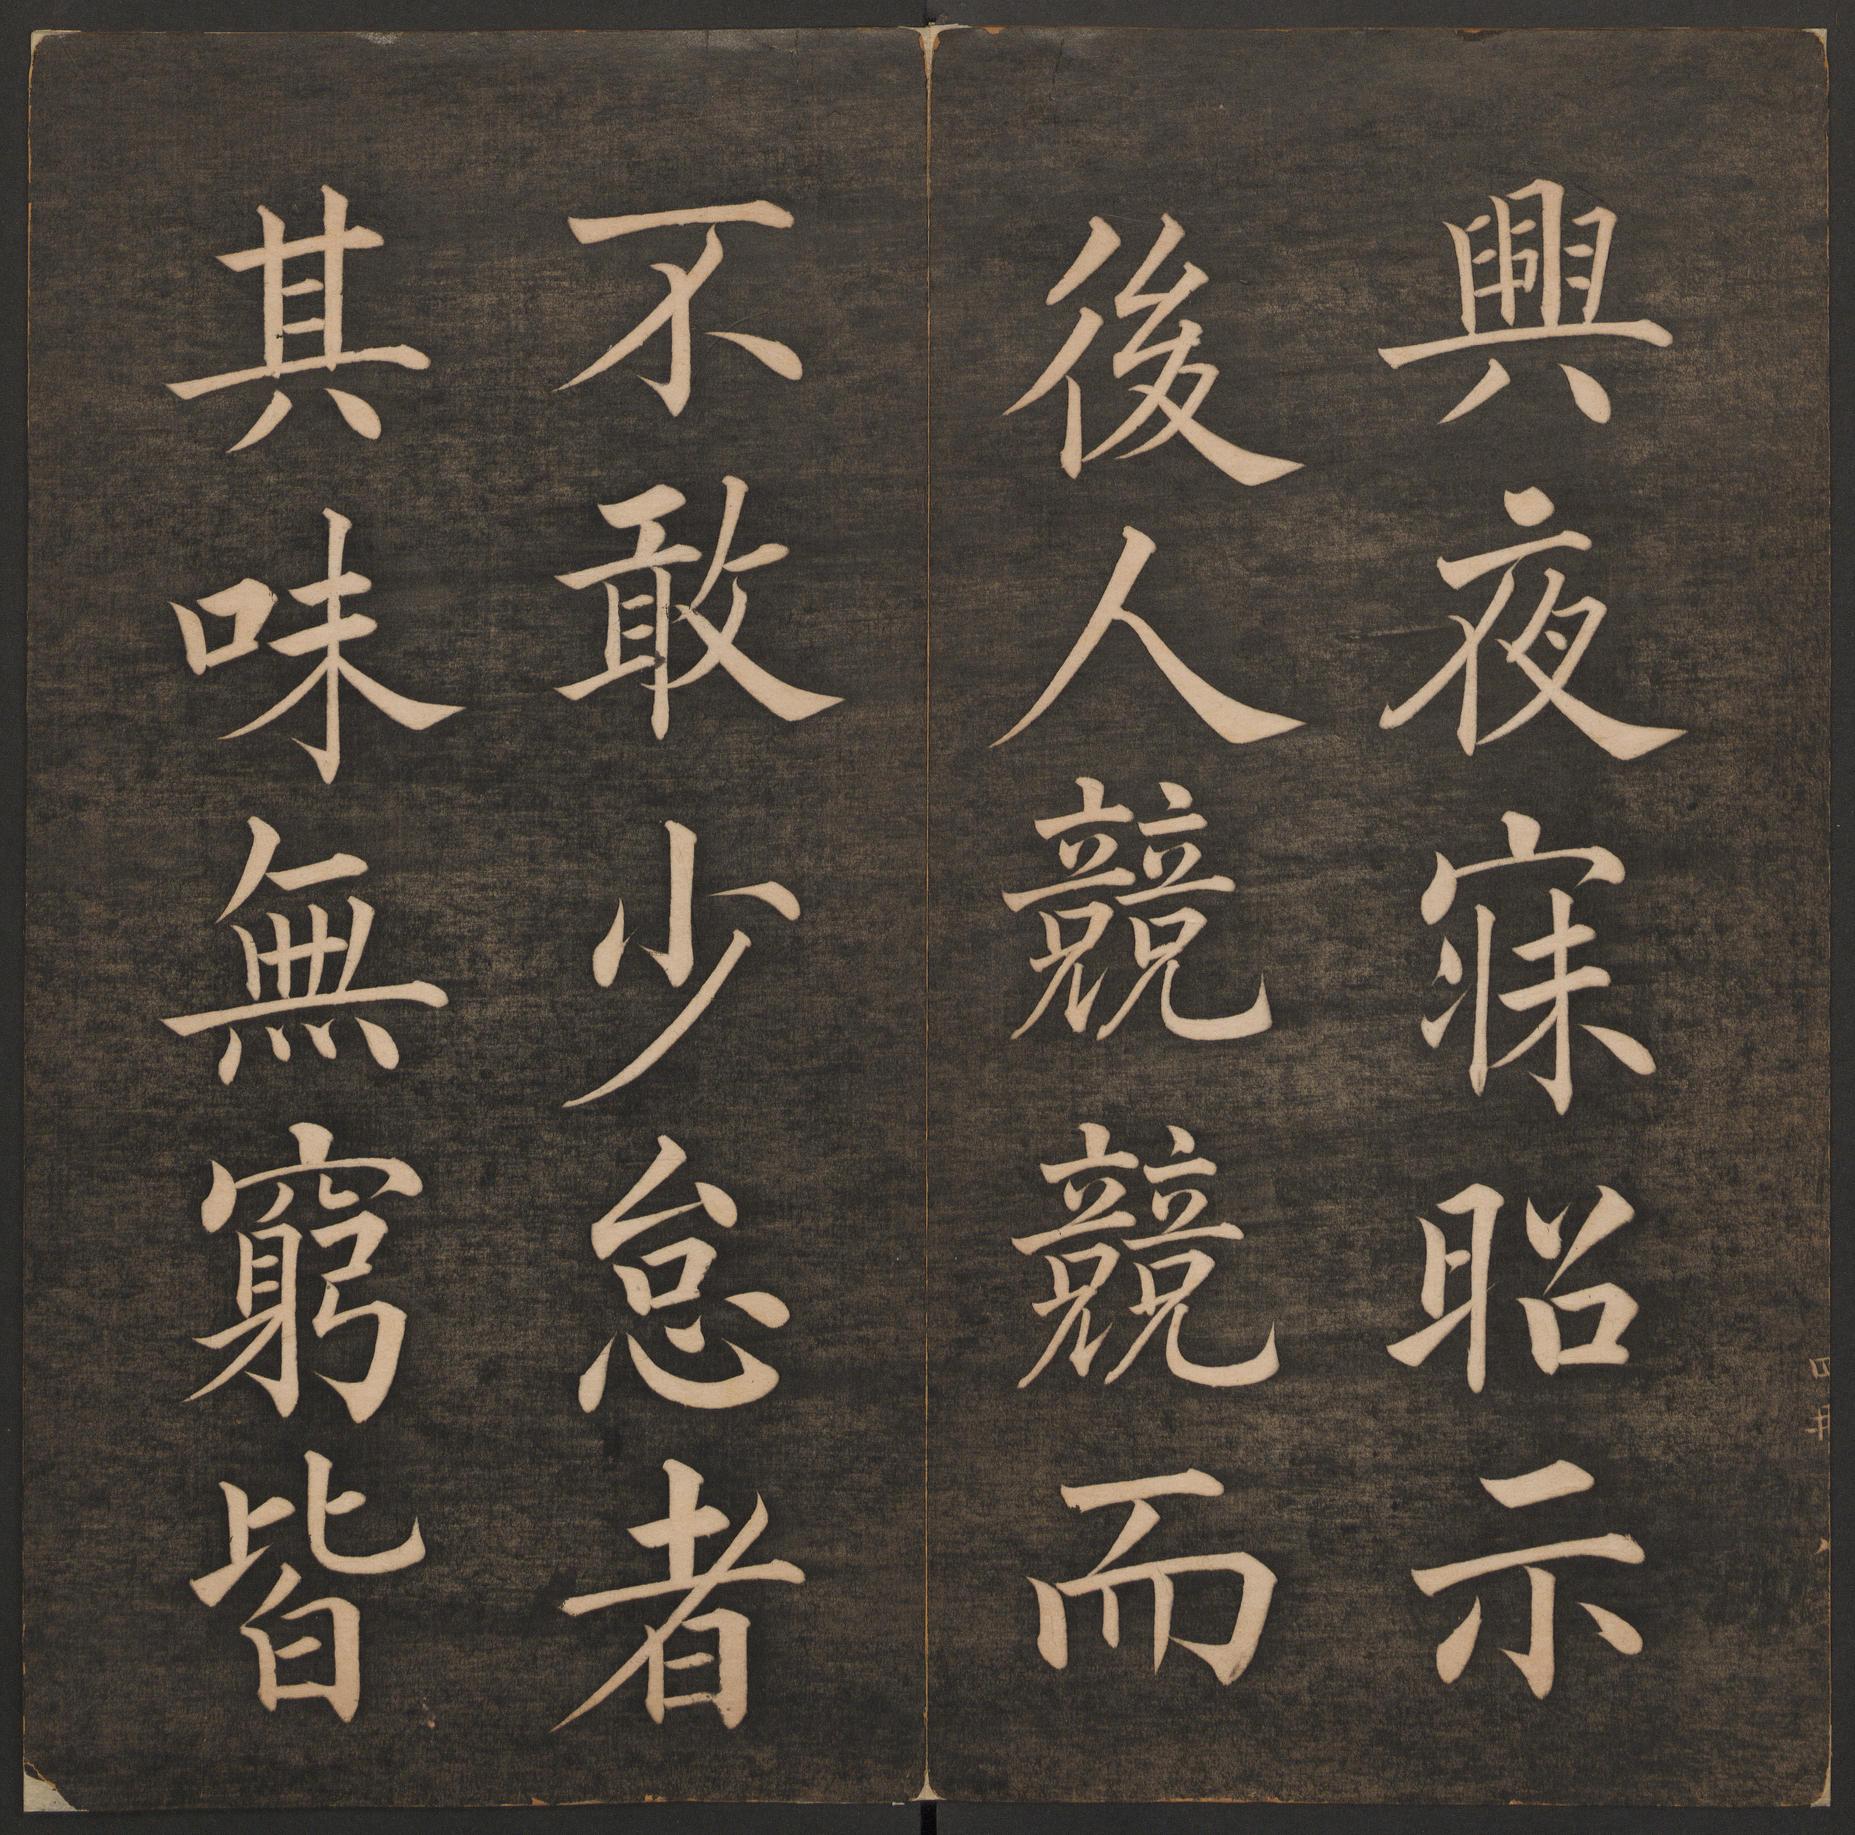 興夜寐昭示
後人競競而
不敢少怠者
其味無窮皆